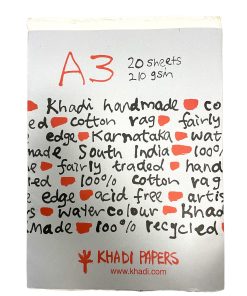 A3 20 sheets
210 gsm
Khadi handmade co
ed cotton rag fairly
edge Karnataka wat
made South India 100%
e fairly traded hand
led 100% cotton rag
e edge acid free artis
rs watercolour Khad
made 100% recycled
KHADI PAPERS
www.khadi.com